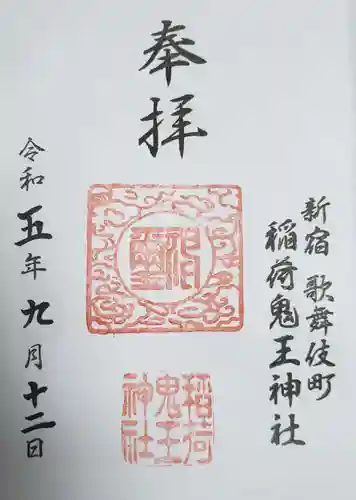 奉拝
新宿 歌舞伎町
稲荷鬼王神社
稲荷
鬼王
神社
令和五年九月十二日